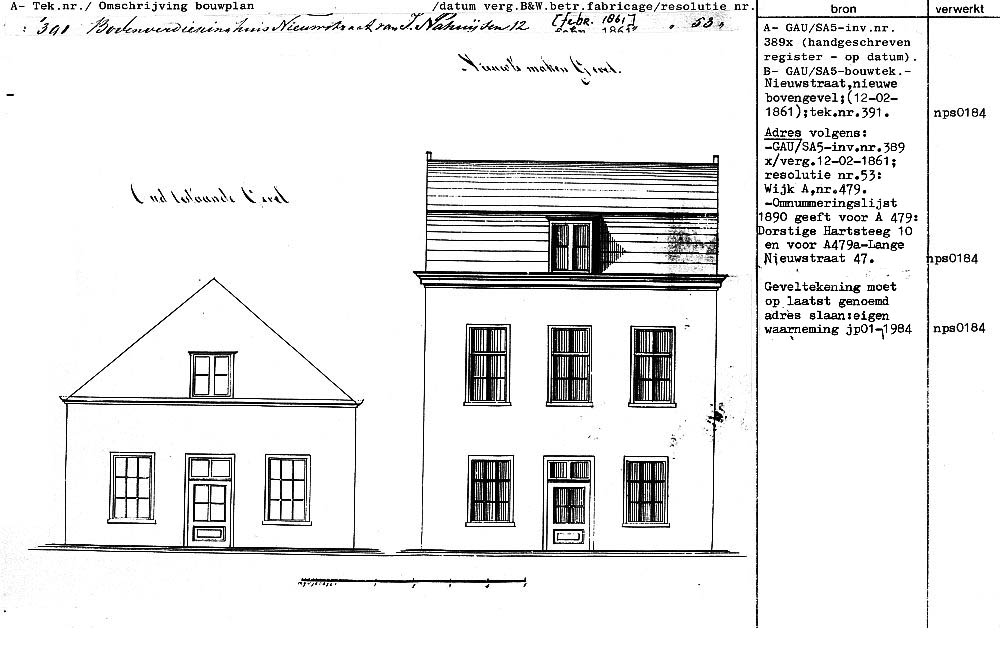 A- Tek.nr./ Omschrijving bouwplan /datum verg.B&W.betr.fabricage/resolutie nr.
bron
verwerkt
391 Bovenverdieping huis Nieuwstraat van J. Nahuijsen 12 [febr. 1861] 53.
Nieuw te maken Gevel.
Oud bestaande Gevel
A- GAU/SA5-inv.nr.
389x (handgeschreven
register - op datum).
B- GAU/SA5-bouwtek.-
Nieuwstraat,nieuwe
bovengevel;(12-02-
1861);tek.nr.391.
nps0184
Adres volgens:
-GAU/SA5-inv.nr.389
x/verg.12-02-1861;
resolutie nr.53:
Wijk A,nr.479.
-Omnummeringslijst
1890 geeft voor A 479:
Dorstige Hartsteeg 10
en voor A479a-Lange
Nieuwstraat 47.
nps0184
Geveltekening moet
op laatst genoemd
adres slaan:eigen
waarneming jp01-1984
nps0184